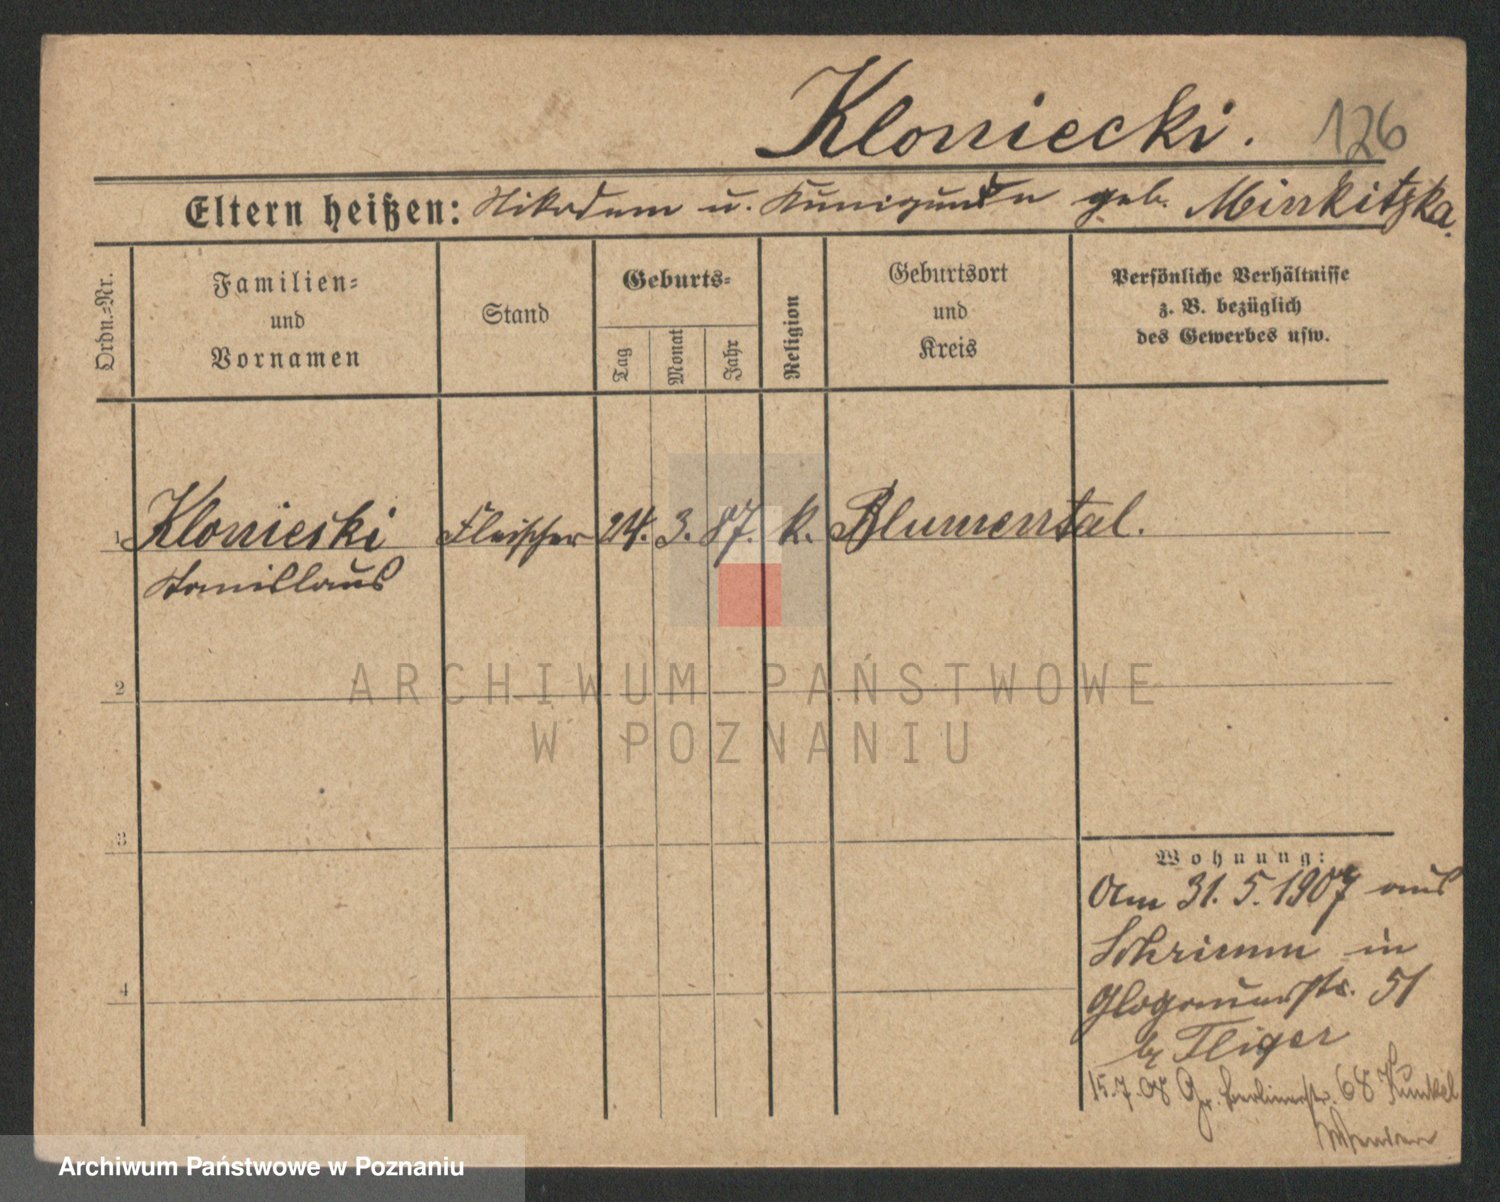 Kloniecki. 126
Eltern heißen: Nikodem u. Kunigunde geb. Minkitzka.
Ordn.-Nr.
Familien-
und
Vornamen
Stand
Geburts-
Tag
Monat
Jahr
Religion
Geburtsort
und
Kreis
Persönliche Verhältnisse
z. B. bezüglich
des Gewerbes usw.
1 Klonieski Fleischer 24. 3. 87. k. Blumental.
Stanislaus
2
3
4
Wohnung:
Am 31. 5. 1907 aus
Schrimm in
Glogauerstr. 51
by Fliger
15.7.08 Gr. Berlinerstr. 68 Kunkel
ARCHIWUM PAŃSTWOWE
W POZNANIU
Archiwum Państwowe w Poznaniu